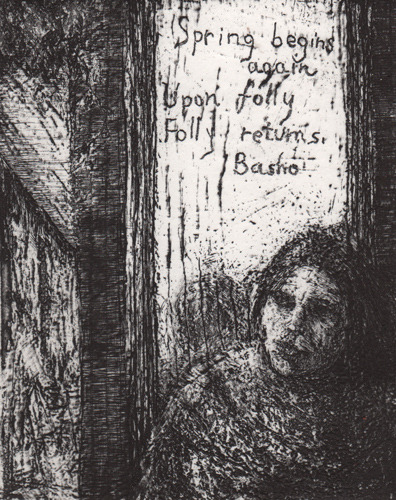 Spring begins
again
Upon folly
Folly returns.
Basho